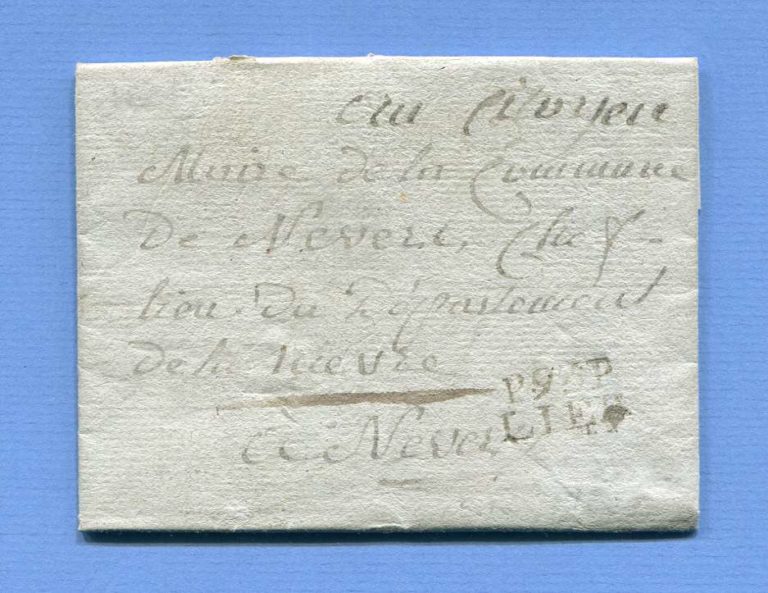 au Citoyen
Maire de la Commune
De Nevers, Chef-
lieu du Département
de la nievre
P96P
LIER
à Nevers